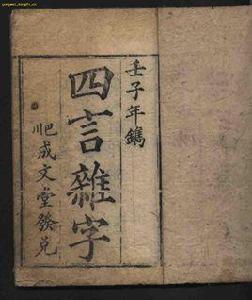 壬子年鐫
四言雜字
成文堂發兌